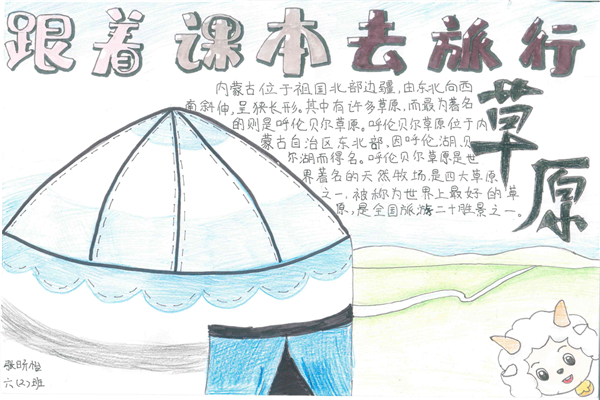 跟着课本去旅行
草原
内蒙古位于祖国北部边疆，由东北向西
南斜伸，呈狭长形。其中有许多草原，而最为著名
的则是呼伦贝尔草原。呼伦贝尔草原位于内
蒙古自治区东北部，因呼伦湖、贝
尔湖而得名。呼伦贝尔草原是世
界著名的天然牧场，是四大草原
之一，被称为世界上最好的草
原，是全国旅游二十胜景之一。
六(2)班